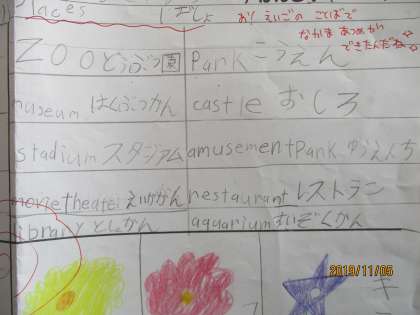 Places ばしょ
お！えいごの ことばで
なかま あつめが
できたんだね
zooどうぶつ園 Parkこうえん
museum はくぶつかん castle おしろ
stadium スタジアム amusementPark ゆうえんち
movietheater えいがかん restaurant レストラン
library としょかん aquariumすいぞくかん
2019/11/05